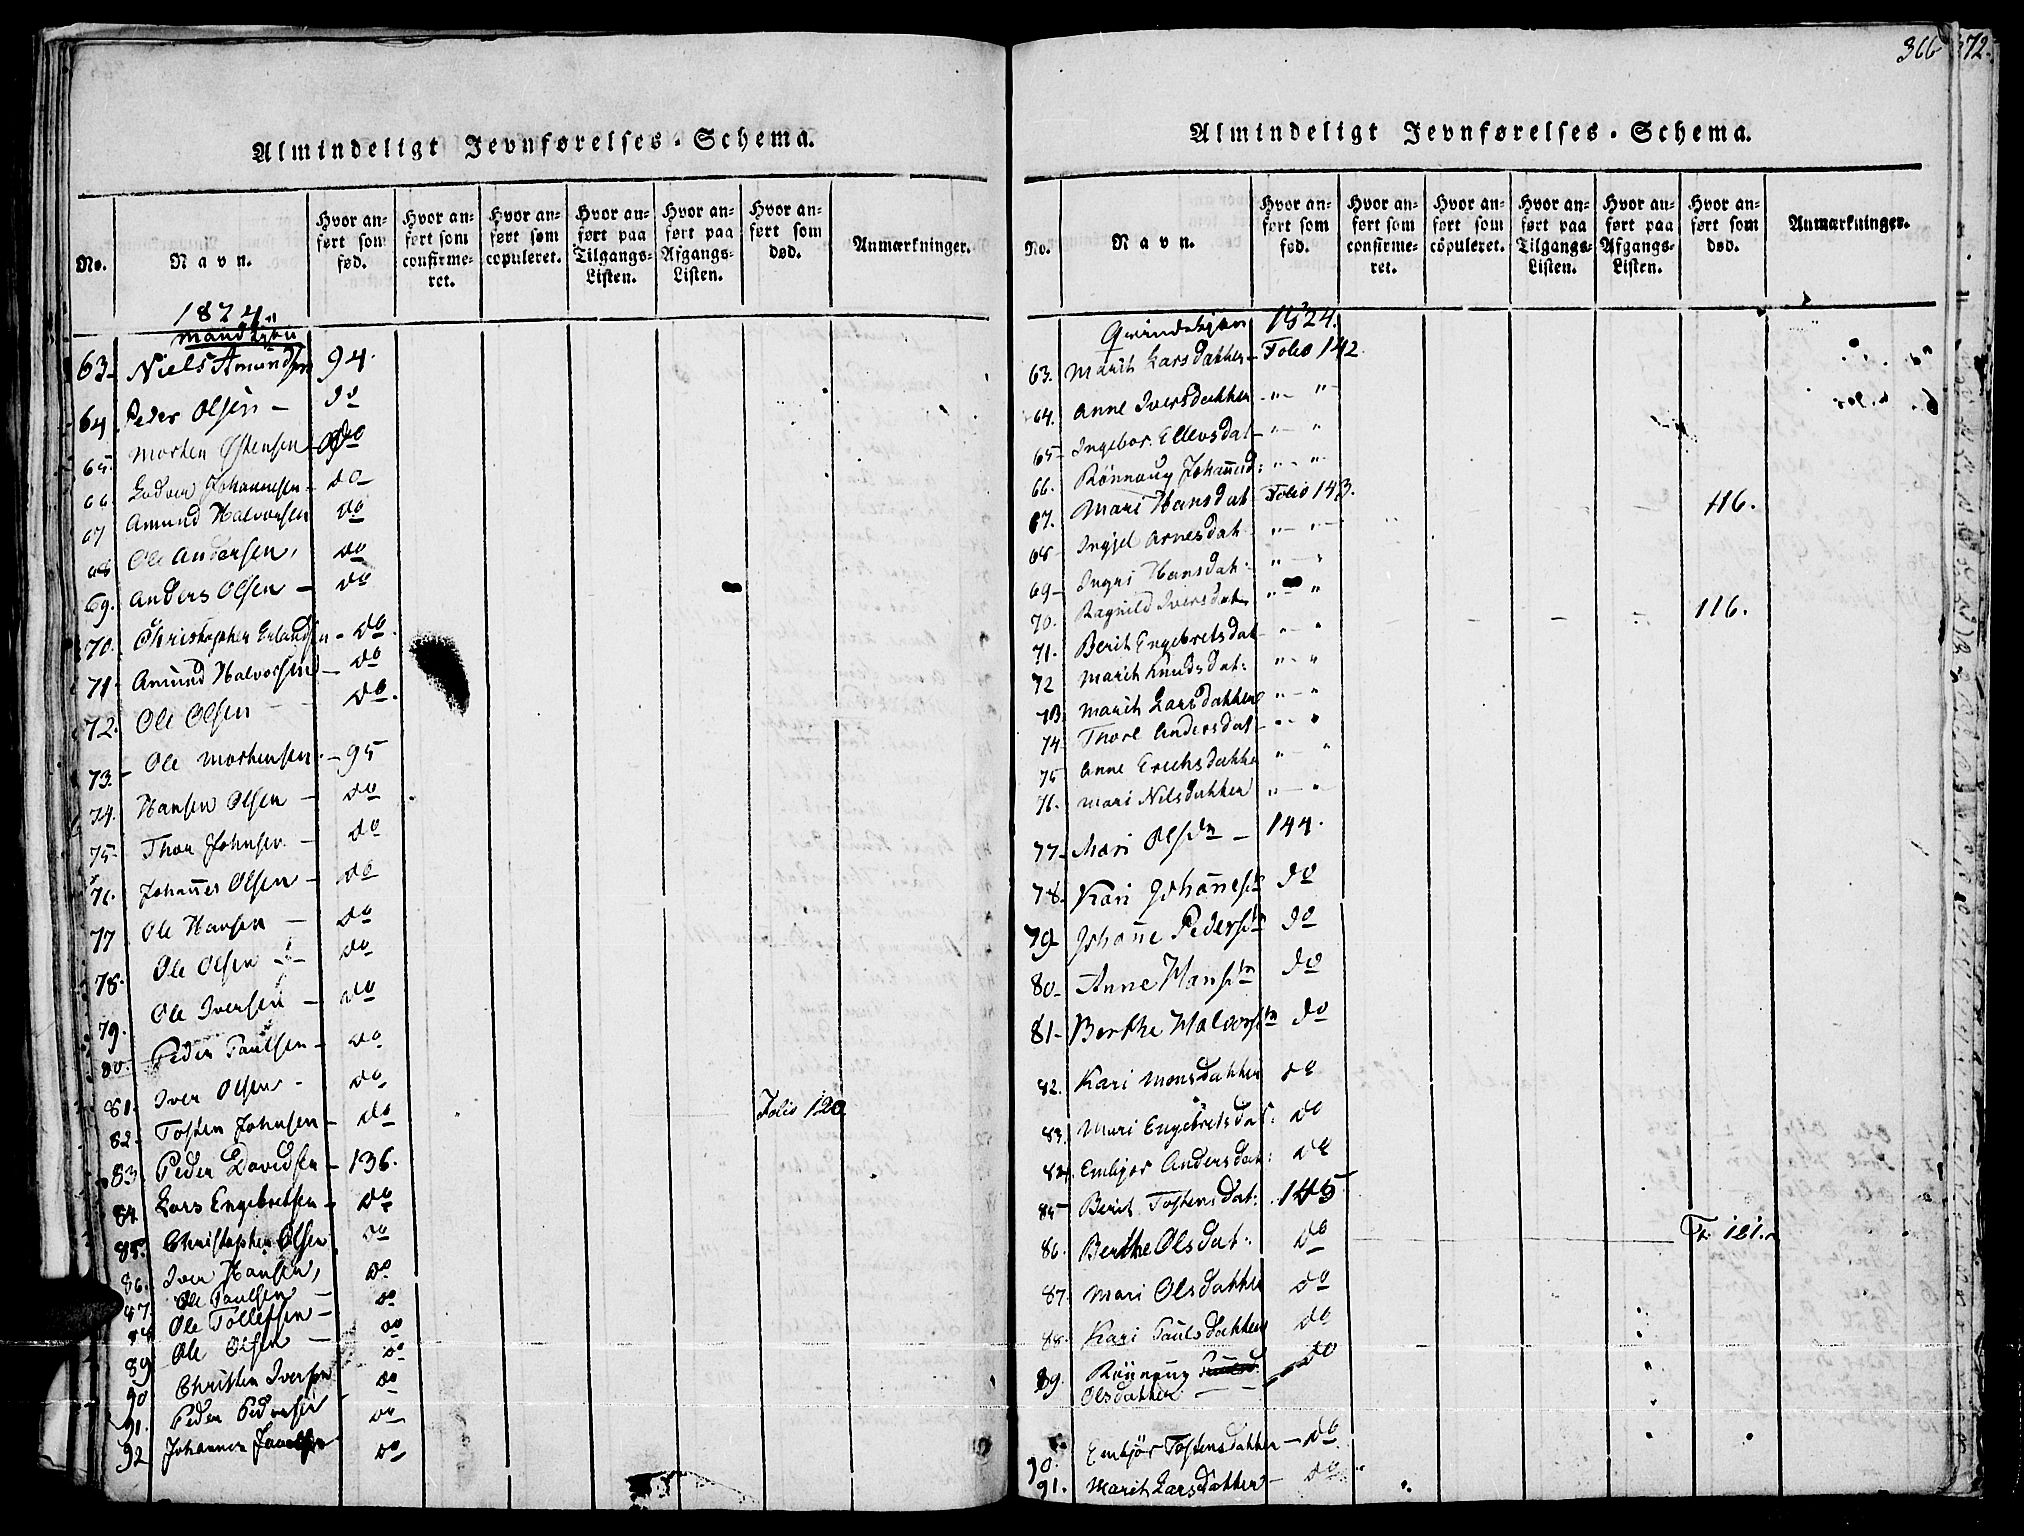 366
72.
Almindeligt Jevnførelses-Schema.
No.
Navn.
Hvor anført som fød.
Hvor anført som confirmeret.
Hvor anført som copuleret.
Hvor anført paa Tilgangs-Listen.
Hvor anført paa Afgangs-Listen.
Hvor anført som død.
Anmærkninger.
1824
Mandkjøn
63 Niels Amundsen 94.
64 Peder Olsen - do
65 Morten Østensen do
66 Johannesen - do
67 Amund Halvorsen do
68 Ole Andersen, do
69. Anders Olsen - do
70. Christopher Erlandsen - do.
71 Amund Halvorsen - do
72. Ole Olsen - do.
73. Ole Mortensen - 95
74. Hansen Olsen - do
75- Thor Johnsen - do
76. Johannes Olsen - do
77 Ole Hansen - do
78. Ole Olsen - do
79. Ole Iversen - do
80. Peder Paulsen - do
81. Iver Olsen - do
82. Tosten Johnsen - do Folio 120
83. Peder Davidsen - 136.
84 Lars Engebretsen - do
85. Christopher Olsen do
86. Iver Hansen, do
87. Ole Paulsen - do
88 Ole Tollefsen - do
89 Ole Olsen - do
90 Christen Iversen do
91. Peder Pedersen do
92 Johannes do
Almindeligt Jevnførelses-Schema.
No.
Navn.
Hvor anført som fød.
Hvor anført som confirmeret.
Hvor anført som copuleret.
Hvor anført paa Tilgangs-Listen.
Hvor anført paa Afgangs-Listen.
Hvor anført som død.
Anmærkninger.
Qvindekjøn 1824.
63. Marit Larsdatter - Folio 142
64. Anne Iversdatter - " - "
65 Ingebor Ellevsdat - " - "
66. Rönnoug Johannsd: " - "
67. Mari Hansdat: Folio 143. 116.
68 Ingjel Arnesdat: " - "
69- Ingri Hansdat: " - "
70. Ragnild Iversdat " - " 116.
71. Berit Engebretsdat - " - "
72 Marit Knudsdat: " - "
73 Marit Larsdatter " - "
74 Thore Andersdat - " - "
75 Anne Erichsdatte " - "
76. Mari Nilsdatter " - "
77- Mari Olsdn - 144.
78. Kari Johanesdn do
79 Johanne Pedersdn do
80- Anne Hansdn do
81- Berthe Halvorsdn do
82. Kari Monsdatter do
83. Mari Engebretsdat: do
84. Embjør Andersdat: do
85 Berit Tostensdat: 145
86. Berthe Olsdat: do Fo 121.
87. Mari Olsdatter do
88. Kari Paulsdatter do
89. Rönnoug Olsdatter do
90. Embjør Tostensdatter - do
91. Marit Larsdatter - do